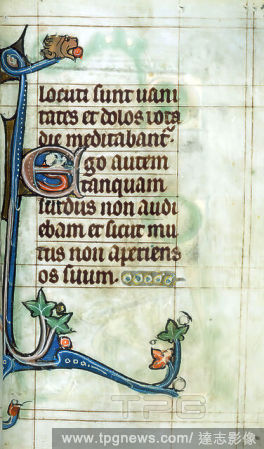 locuti sunt uani
tates et dolos tota
die meditabant.
Ego autem
tanquam
surdus non audi
ebam et sicut mu
tus non aperiens
os suum.
TPG
www.tpgnews.com/ 達志影像